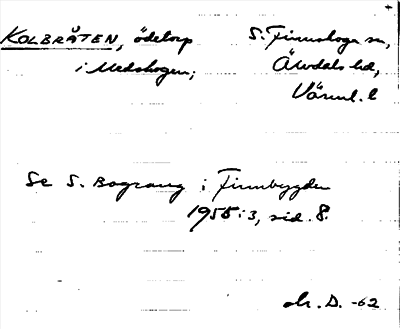 KOLBRÅTEN, ödetorp S. Finnskoga sn,
i Medskogen; Älvdals hd,
Värml. l
Se S. Bograng i Finnbygden
1955:3, sid. 8.
-62